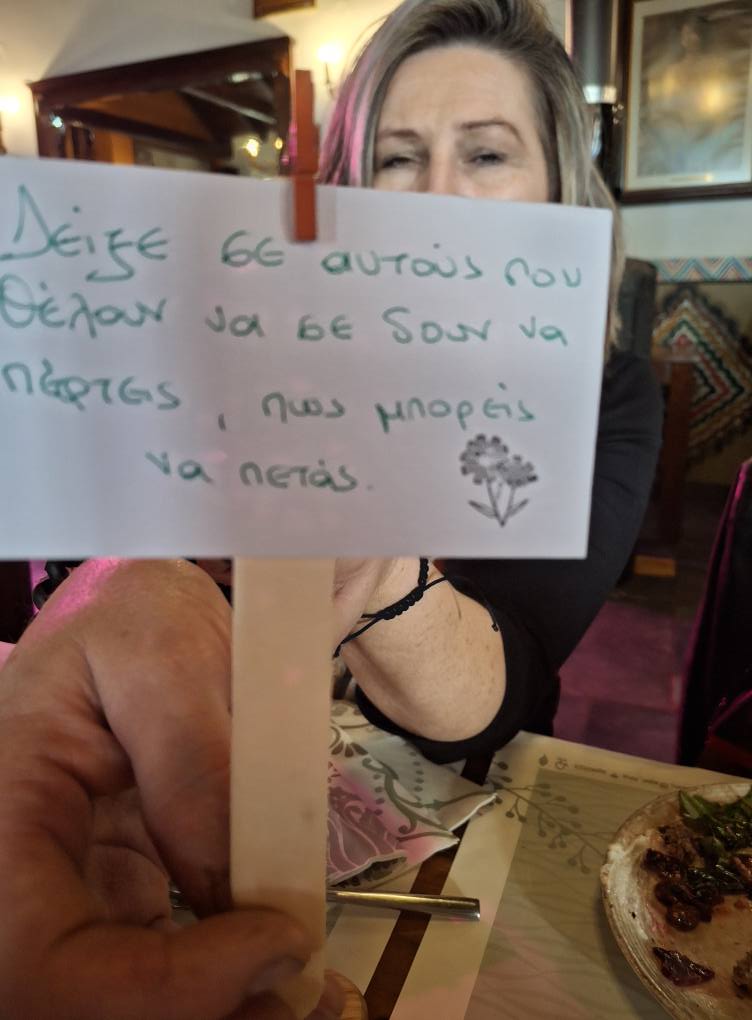 Δείξε σε αυτούς που
θέλουν να σε δουν να
πέφτεις , πως μπορείς
να πετάς.